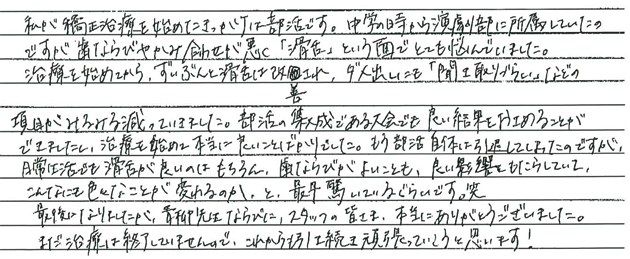 私が矯正治療を始めたきっかけは部活です。中学の時から演劇部に所属していたの
ですが歯ならびやかみ合わせが悪く「滑舌」という面でとても悩んでいました。
治療を始めてから、ずいぶんと滑舌は改善され、ダメ出しにも「聞き取りづらい」などの
項目がみるみる減っていきました。部活の集大成である大会でも良い結果をおさめることが
できましたし、治療を始めて本当に良いことばかりでした。もう部活自体は引退してしまったのですが、
日常生活でも滑舌が良いのはもちろん、歯ならびがよいことも、良い影響をもたらしていて、
こんなにも色々なことが変わるのか、と、最早驚いているぐらいです。笑
最後になりましたが、青柳先生ならびに、スタッフの皆さま、本当にありがとうございました。
まだ治療は終了していませんので、これからも引き続き頑張っていこうと思います!